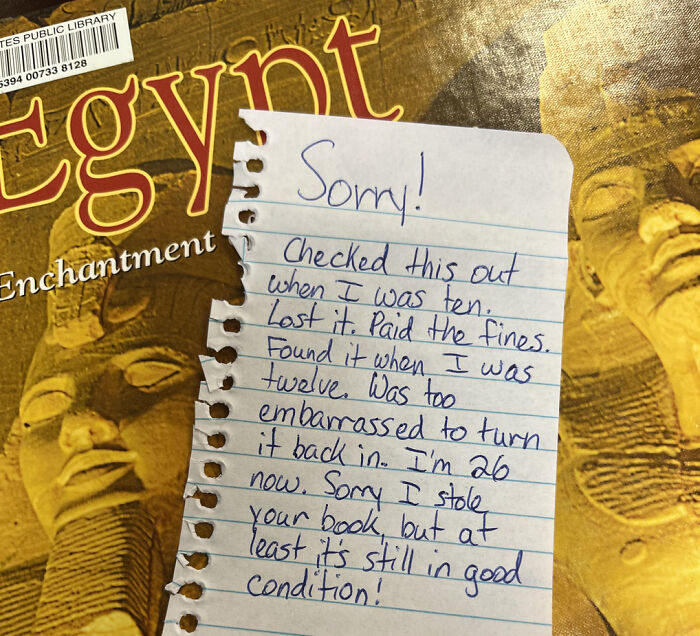 TES PUBLIC LIBRARY
5394 00733 8128
Egypt
Enchantment
Sorry!
Checked this out
when I was ten.
Lost it. Paid the fines.
Found it when I was
twelve. Was too
embarrassed to turn
it back in. I'm 26
now. Sorry I stole
your book, but at
least it's still in good
condition!